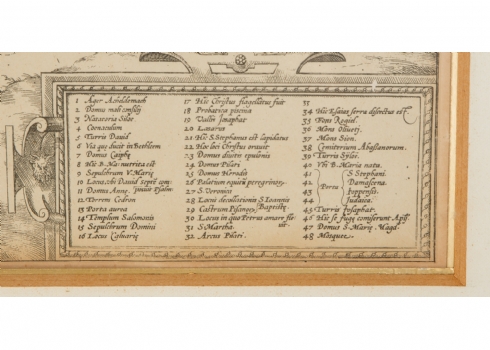 1 Ager Acheldemach
2 Domus mali consilij
3 Natatoria Siloe
4 Coenaculum
5 Turris David
6 Via qua ducit in Bethleem
7 Domus Caiphę
8 Hic B. Mª. nutrita est
9 Sepulchrum V. Marię
10 Locus, ubi David septē com
11 Domus Annę, posuit Psalm
12 Torrens Cedron
13 Porta aurea
14 Templum Salomonis
15 Sepulchrum Domini
16 Locus Calvarię
17 Hic Christus flagellatus fuit
18 Probatica piscina
19 Vallis Iosaphat
20 Lazarus
21 Hic S. Stephanus est lapidatus
22 Hoc loci Christus oravit
23 Domus divitis epulonis
24 Domus Pilati
25 Domus Herodis
26 Palatium equitū peregrinoru
27 S. Veronica
28 Locus decollationis S. Ioannis
29 Castrum Pisanoru Baptistę
30 Locus in quo Petrus amare fle
31 S. Martha vit
32 Arcus Pilati
33
34 Hic Esaias serra dissectus est
35 Fons Rogiel
36 Mons Oliveti
37 Mons Sion
38 Cemiterium Abassianorum
39 Turris Syloe
40 Vbi B. Maria nata
41 S. Stephani
42 Damascena
43 Porta Joppensis
44 Judaica
45 Turris Josaphat
46 Hic se fugę comiserunt Apli
47 Domus S. Marię Magd
48 Mosquee